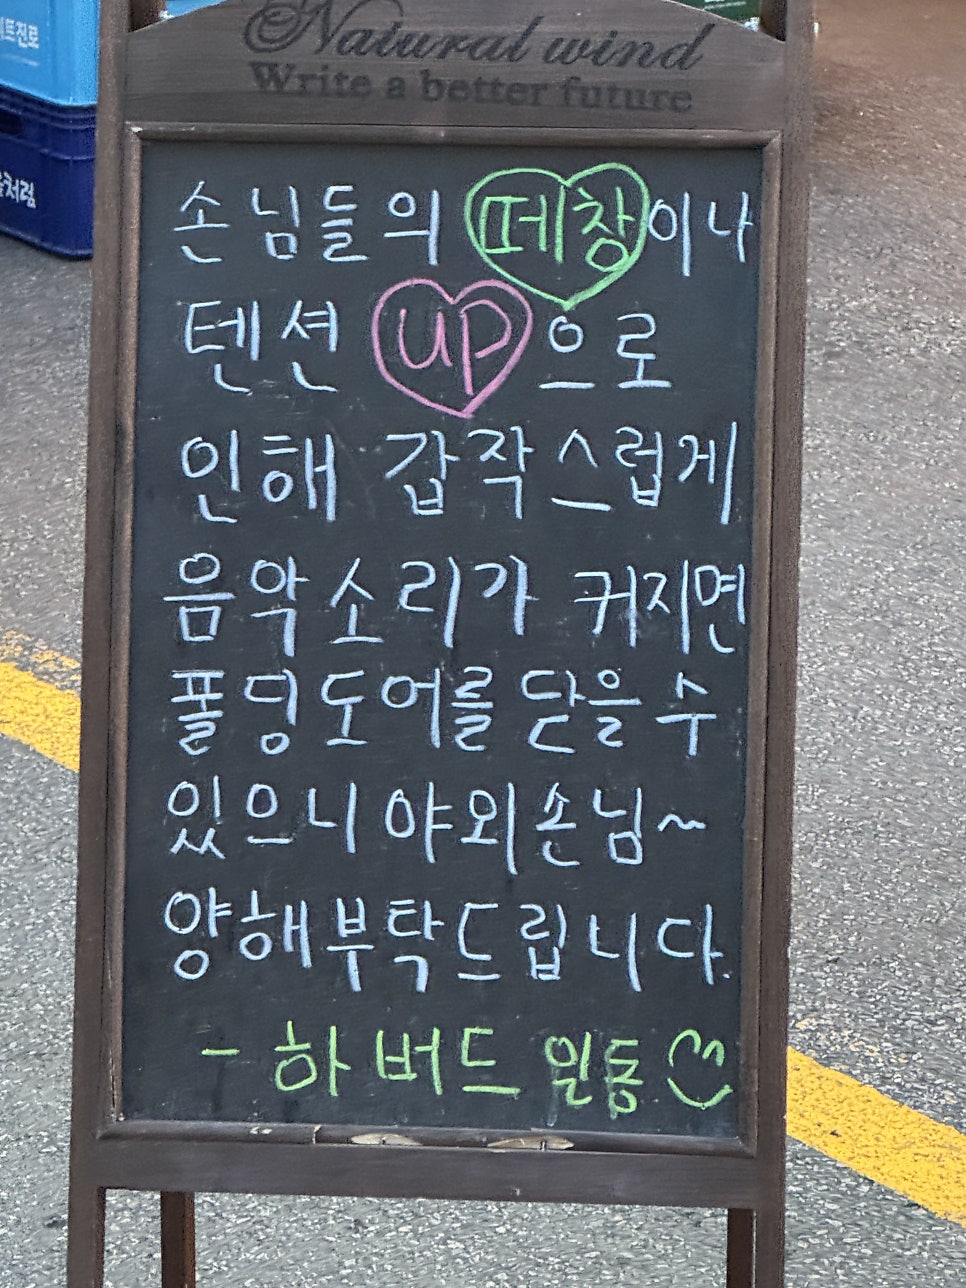 트진로
처럼
Natural wind
Write a better future
손님들의 떼창이나
텐션 up으로
인해 갑작스럽게
음악소리가 커지면
폴딩도어를 닫을수
있으니 야외손님~
양해부탁드립니다.
- 하버드 일동